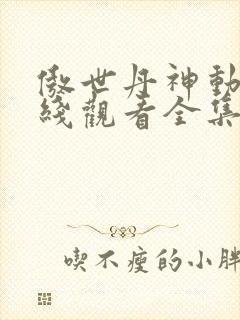 傲世丹神動
綫觀看全集
喫不瘦的小胖